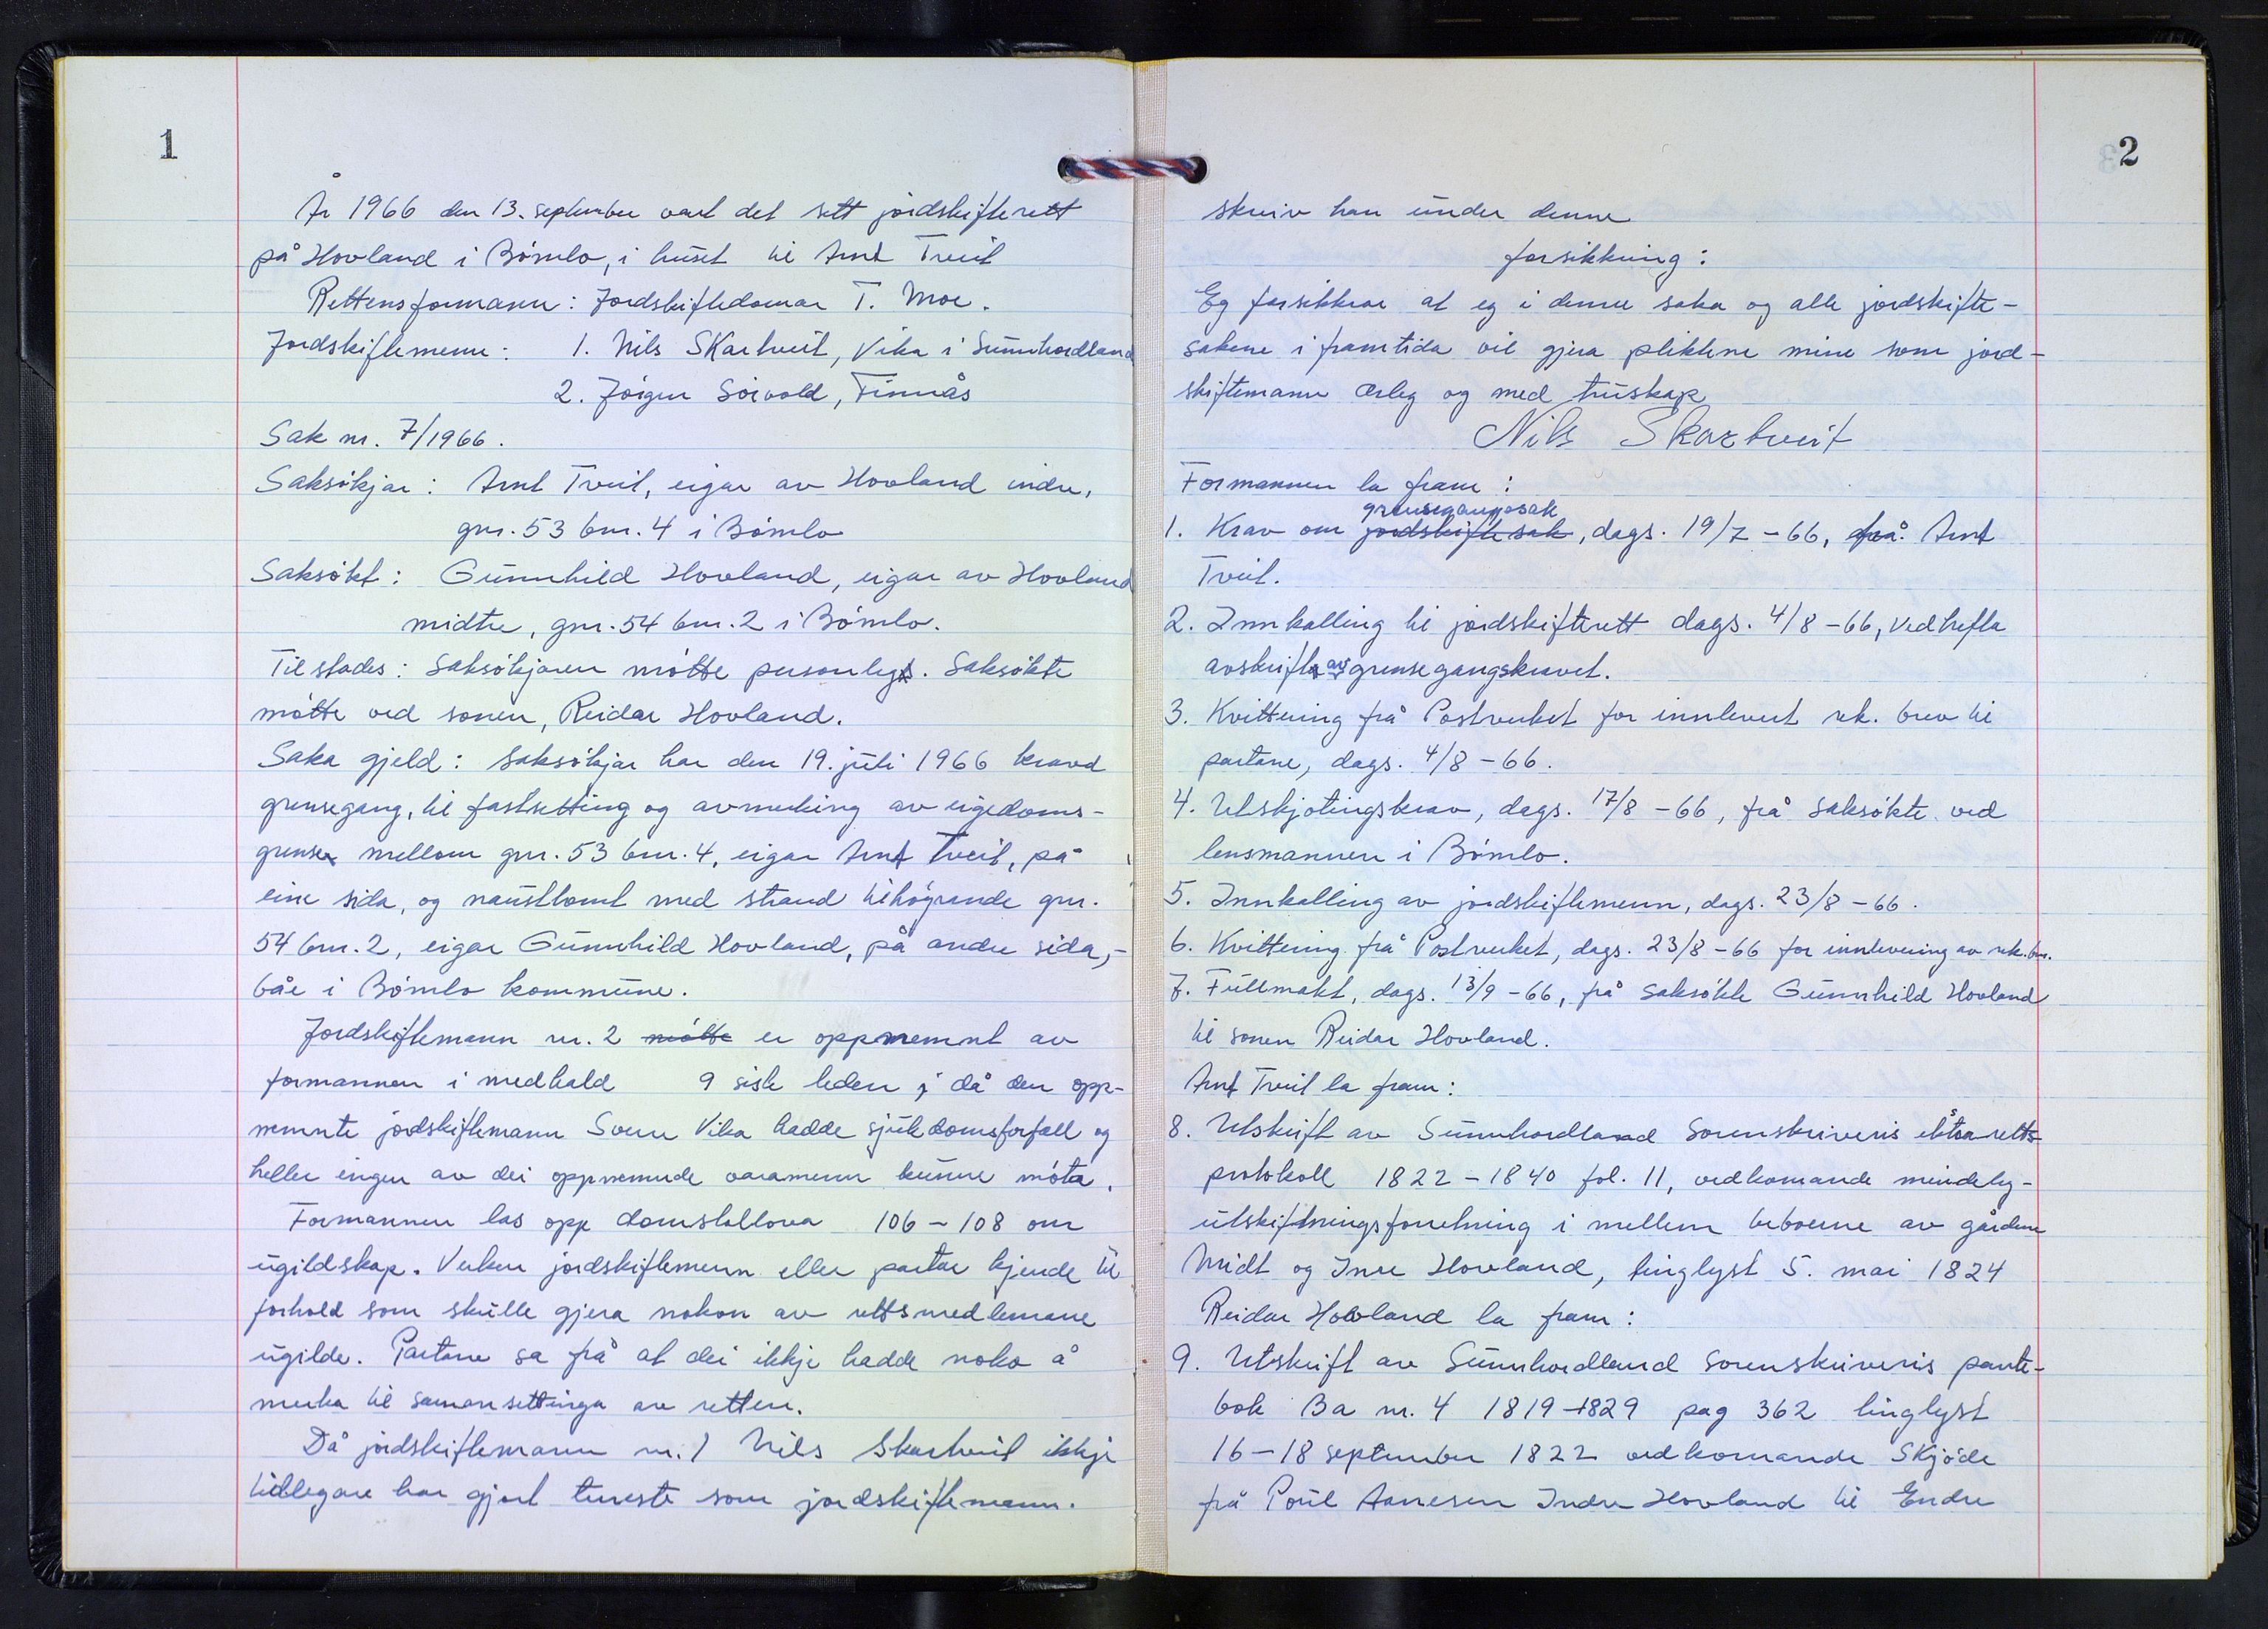 1
År 1966 den 13. september vart det sett jordskifterett
på Hovland i Bömlo, i huset til Arnt Tveit
Rettensformann: Jordskiftedomar T. Moe.
Jordskiftemenn: 1. Nils Skartveit, Vika i Sunnhordland
2. Jörgen Sörvold, Finnås
Sak nr. 7/1966.
Saksökjar: Arnt Tveit, eigar av Hovland indre,
gnr. 53 bnr. 4 i Bömlo
Saksökt: Gunnhild Hovland, eigar av Hovland
midtre, gnr. 54 bnr. 2 i Bömlo.
Til stades: Saksökjaren mötte personleg. Saksökte
mötte ved sonen, Reidar Hovland.
Saka gjeld: Saksökjar har den 19. juli 1966 kravd
grensegang, til fastsetting og avmerking av eigedoms-
grense mellom gnr. 53 bnr. 4, eigar Arnt Tveit, på
eine sida, og nausttomt med strand tilhögrande gnr.
54 bnr. 2, eigar Gunnhild Hovland, på andre sida,-
båe i Bömlo kommune.
Jordskiftemann nr. 2 mötte er oppnemnt av
formannen i medhald 9 siste leden, då den opp-
nemnte jordskiftemann Sveen Vika hadde sjukdomsforfall og
heller ingen av dei oppnemnde varamenn kunne möta.
Formannen las opp domstollova 106-108 om
ugildskap. Verken jordskiftemenn eller partar kjende til
forhold som skulle gjera nokon av rettsmedlemane
ugilde. Partane sa frå at dei ikkje hadde noko å
merka til samansettinga av retten.
Då jordskiftemann nr. 1 Nils Skartveit ikkje
tidlegare har gjort teneste som jordskiftemann.
2
skreiv han under denne
forsikkring:
Eg forsikkrar at eg i denne saka og alle jordskifte-
sakene i framtida vil gjera pliktene mine som jord-
skiftemann ærleg og med truskap
Nils Skartveit
Formannen la fram:
grensegangssak
1. Krav om jordskiftesak, dags. 19/7-66, frå Arnt
Tveit.
2. Innkalling til jordskifterett dags. 4/8-66, vedhefta
avskrift av grensegangskravet.
3. Kvittering frå Postverket for innlevert rek. brev til
partane, dags. 4/8-66.
4. Utskjotingskrav, dags. 17/8-66, frå saksökte ved
lensmannen i Bömlo.
5. Innkalling av jordskiftemenn, dags. 23/8-66.
6. Kvittering frå Postverket, dags. 23/8-66 for innlevering av rek. brev.
7. Fullmakt, dags. 13/9-66, frå saksökte Gunnhild Hovland
til sonen Reidar Hovland.
Arnt Tveit la fram:
8. Utskrift av Sunnhordland Sorenskriveris ekstraretts
protokoll 1822-1840 fol. 11, vedkomande mindeleg-
utskiftningsforretning i mellem beboerne av gårdene
Midt og Inre Hovland, tinglyst 5. mai 1824
Reidar Hovland la fram:
9. Utskrift av Sunnhordland Sorenskriveris pante-
bok Ba nr. 4 1819-1829 pag 362 tinglyst
16-18 september 1822 vedkomande Skjöde
frå Poul Aanesen Indre Hovland til Endre